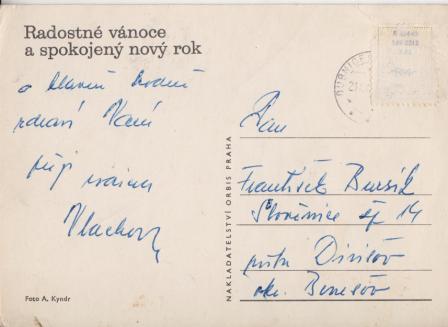 Radostné vánoce
a spokojený nový rok
a hlavně hodně
zdraví Vám
přejí
Vlachovi
Pan
František Bursík
Slověnice čp 14
pošta Divišov
okr. Benešov
NAKLADATELSTVÍ ORBIS PRAHA
Foto A. Kyndr